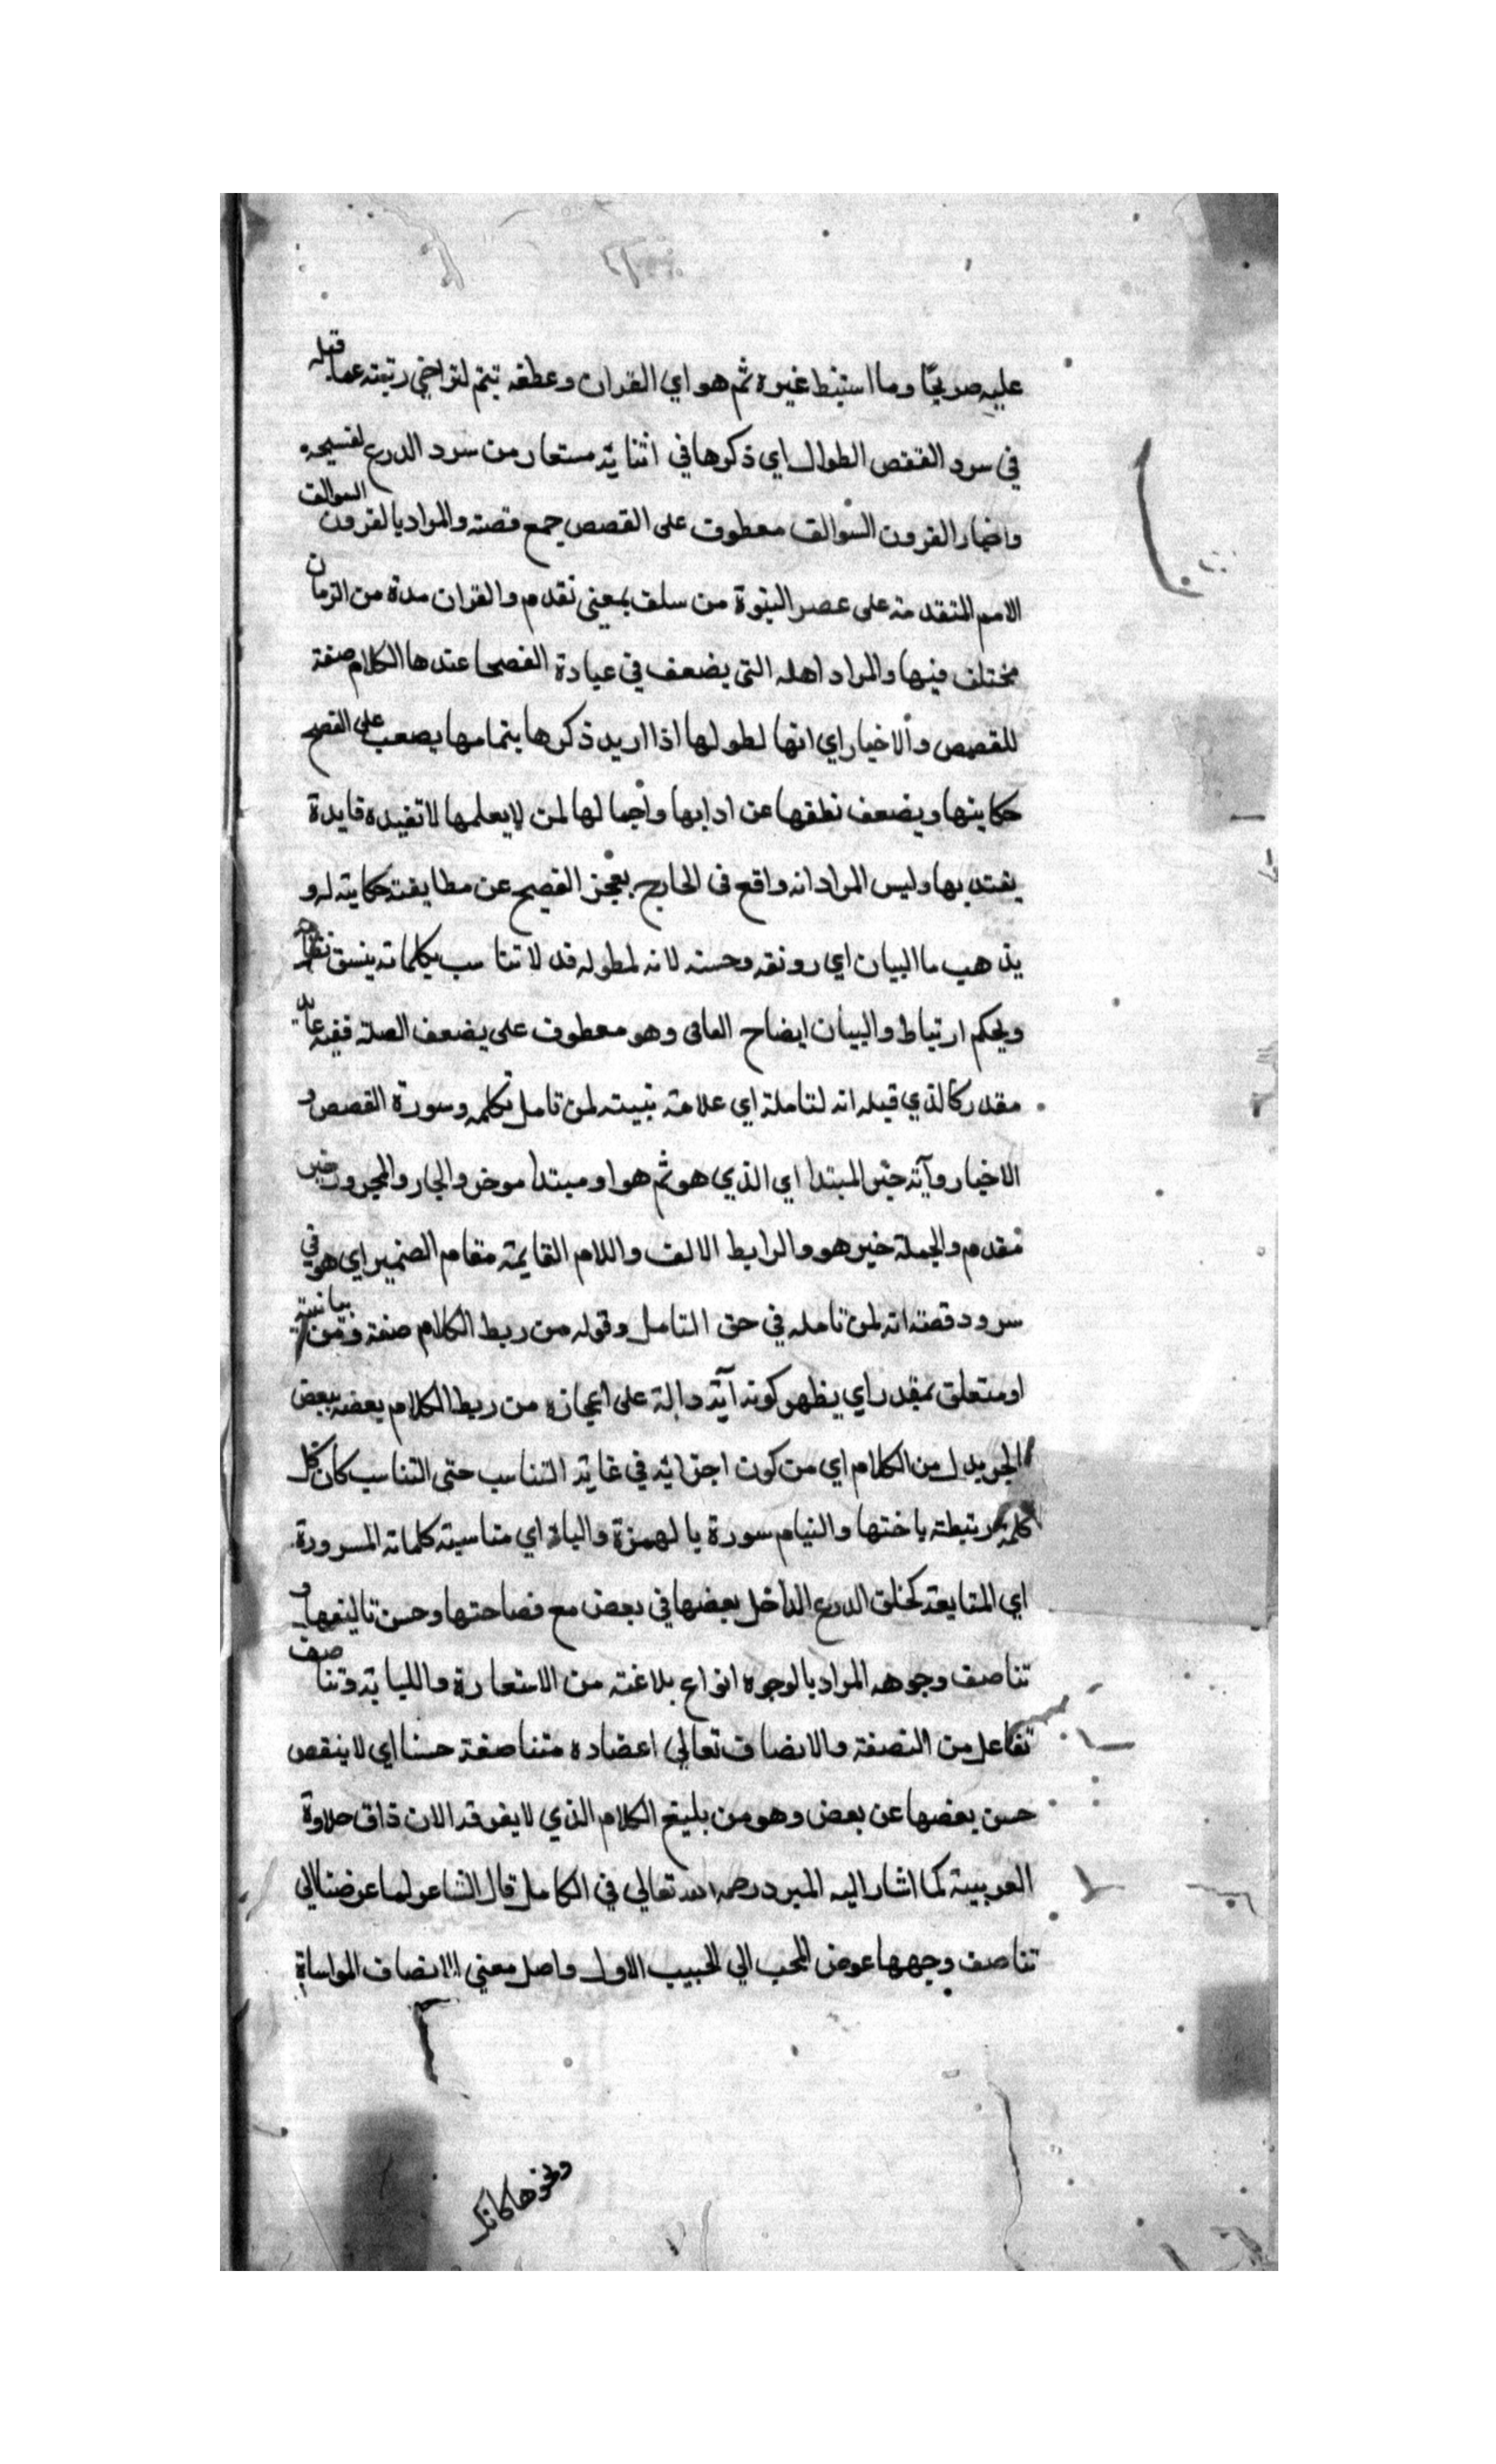 عليه صريحًا وما استنبط غيره ثم هو اي القران وعطفه بثم لتراخي رتبته عما قبله
في سرد القصص الطوال اي ذكرها في اثنائه مستعار من سرد الدرع لنسيجه
واخبار القرون السوالف معطوف على القصص جمع قصة والمراد بالقرون السوالف
الامم المتقدمة على عصر النبوة من سلف بمعنى تقدم والقران مدة من الزمان
مختلف فيها والمراد اهله التى يضعف في عيادة الفصحا عندها الكلام صفة
للقصص والاخبار اي انها لطولها اذا اريد ذكرها بتمامها يصعب على الفصح
حكايتها ويضعف نطقها عن ادابها واجمالها لمن لا يعلمها لا تفيده فايدة
يعتد بها وليس المراد انه واقع فى الخارج يعجز الفصيح عن مطابقة حكايته له و
يذهب ما البيان اي رونقه وحسنه لانه لطوله قد لا تتناسب كلماته ينسق
ويحكم ارتباط والبيان ايضاح العانى وهو معطوف على يضعف الصلة ففيه عايد
مقدر كالذي قبله انه لتاملة اي علامة بينة لمن تامل تكلمه وسورة القصص و
الاخبار وآية خبر المبتدا اي الذي هو ثم هو او مبتدا موخر والجار والمجرور خبر
مقدم والجملة خبر هو والرابط الالف واللام القايمة مقام الضمير اي هو في
سرود قصته انه لمن تامله في حق التامل وقوله من ربط الكلام صفة ومن بيانية
او متعلق بمقدر اي يظهر كونه آية دالة على اعجازه من ربط الكلام بعضه ببعض
الجر بدل من الكلام اي من كون اجزائه في غاية التناسب حتى التناسب كان كل
كلمة مرتبطة باختها والتيام سورة بالهمزة والياء اي مناسبة كلماته المسرودة
اي المتابعة كخلق الدرع الداخل بعضها في بعض مع فصاحتها وحسن تاليفها و
تناصف وجوهه المراد بالوجوه انواع بلاغته من الاستعارة والليابة وتناصف
تفاعل من النصفة والانصاف تعالي اعضاده متناصفة حسنا اي لا ينقص
حسن بعضها عن بعض وهو من بليغ الكلام الذي لا يفوقد الان ذاق حلاوة
العربية كما اشار اليه المبرد رحمه الله تعالي في الكامل قال الشاعر لما عرضنا الي
تناصف وجهها عوض المحب الي الحبيب الاول واصل معني الانصاف المواساة